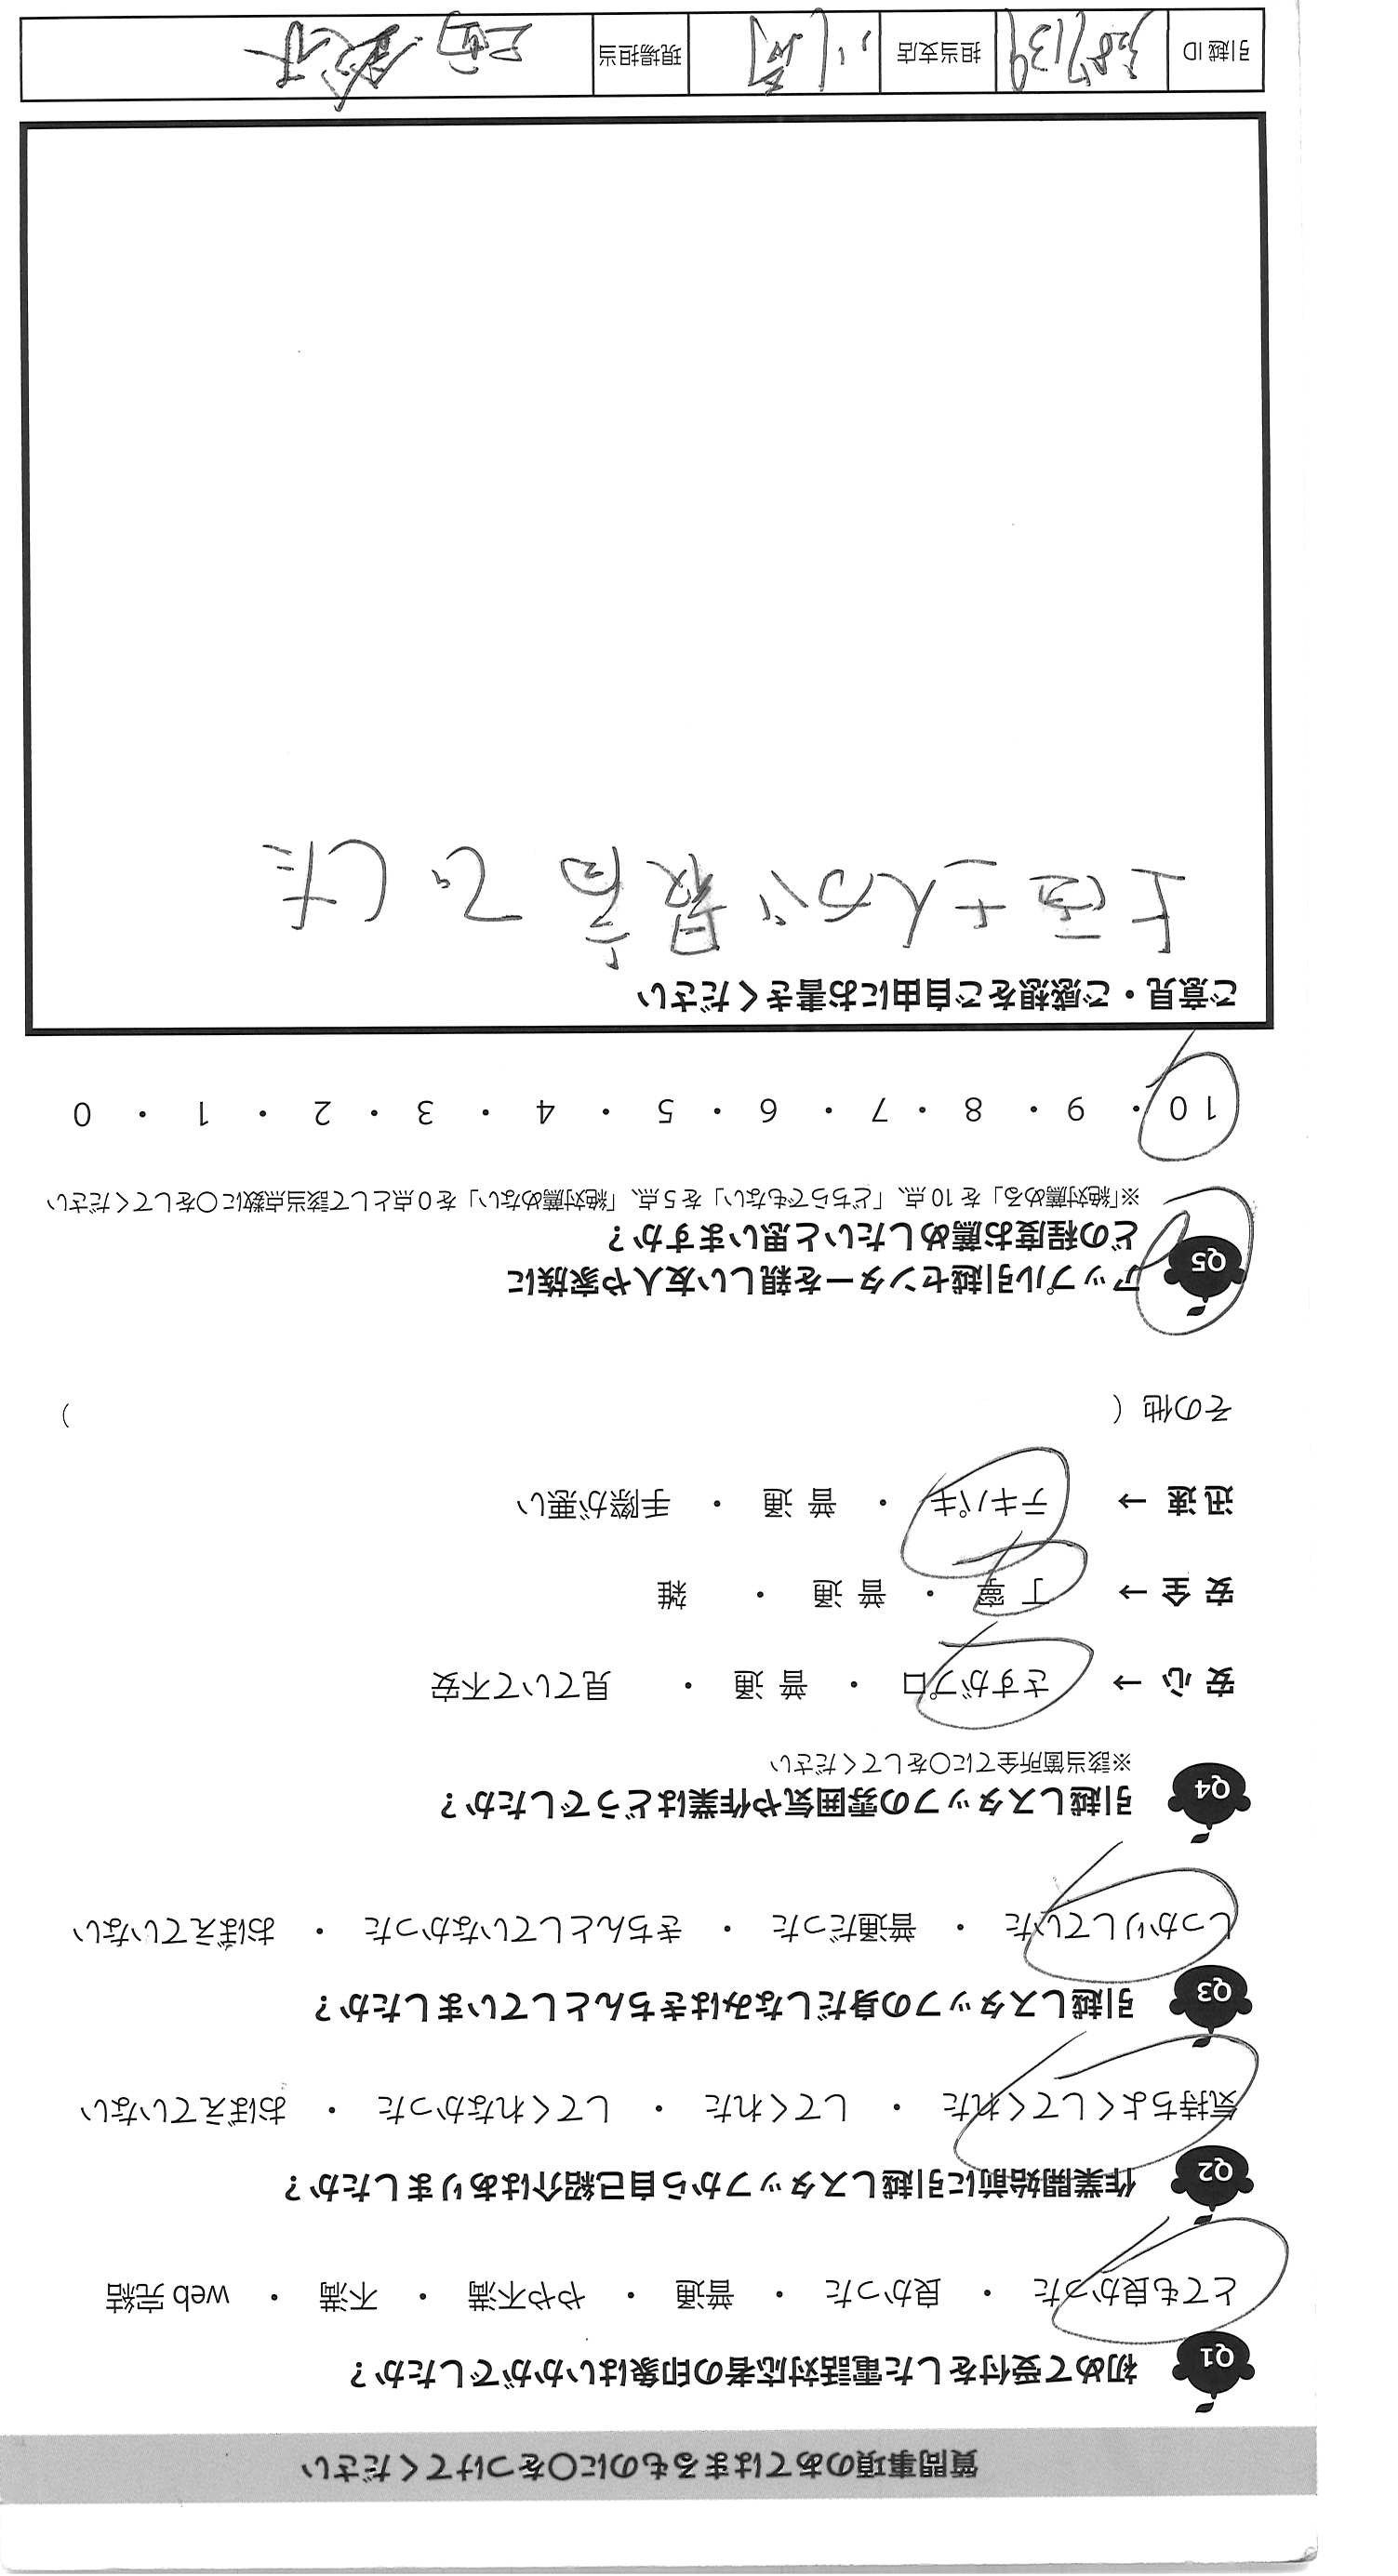 質問事項のあてはまるものに〇をつけてください
Q1 初めて受付をした電話対応者の印象はいかがでしたか？
とても良かった ・ 良かった ・ 普通 ・ やや不満 ・ 不満 ・ web 完結
Q2 作業開始前に引越しスタッフから自己紹介はありましたか？
気持ちよくしてくれた ・ してくれた ・ してくれなかった ・ おぼえていない
Q3 引越しスタッフの身だしなみはきちんとしていましたか？
しっかりしていた ・ 普通だった ・ きちんとしていなかった ・ おぼえていない
Q4 引越しスタッフの雰囲気や作業はどうでしたか？
※該当箇所全てに〇をしてください
安 心 → さすがプロ ・ 普 通 ・ 見ていて不安
安 全 → 丁 寧 ・ 普 通 ・ 雑
迅 速 → テキパキ ・ 普 通 ・ 手際が悪い
その他（ ）
Q5 アップル引越センターを親しい友人や家族に
どの程度お薦めしたいと思いますか？
※「絶対薦める」を 10 点、「どちらでもない」を 5 点、「絶対薦めない」を 0 点として該当点数に〇をしてください
10 ・ 9 ・ 8 ・ 7 ・ 6 ・ 5 ・ 4 ・ 3 ・ 2 ・ 1 ・ 0
ご意見・ご感想をご自由にお書きください
さんが最高でした
引越 ID 担当支店 現場担当